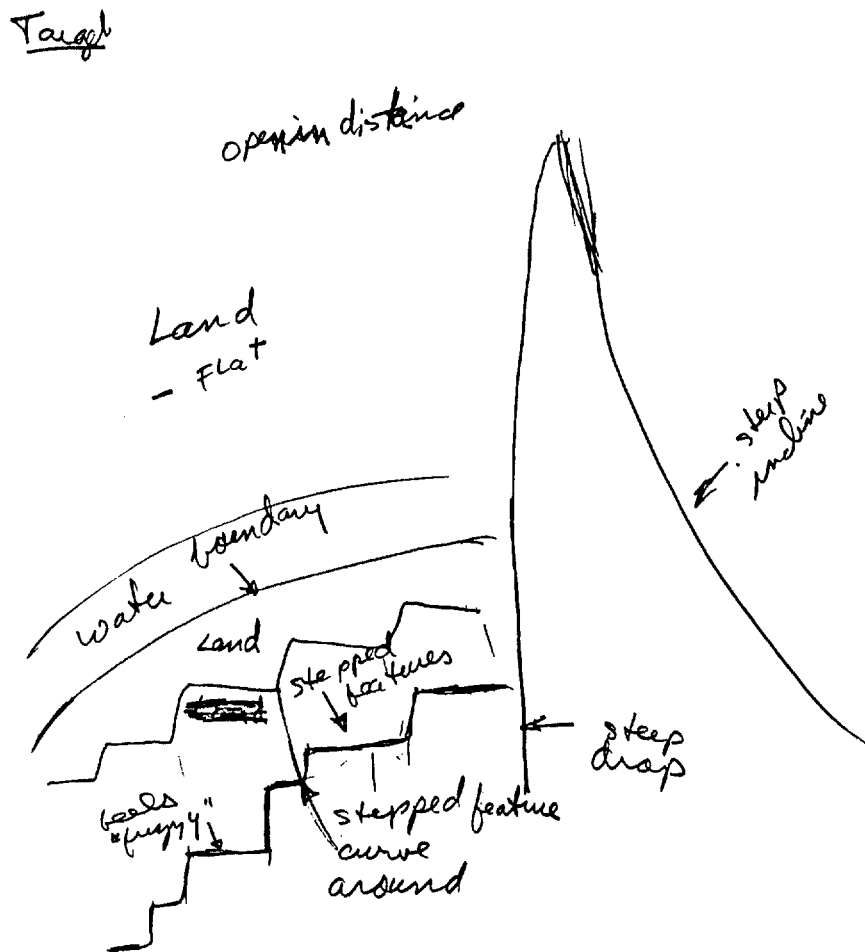 Target
open in distance
Land
- FLat
steep
incline
water boundary
Land
stepped
features
steep
drop
feels
"fuzzy"
stepped feature
curve
around